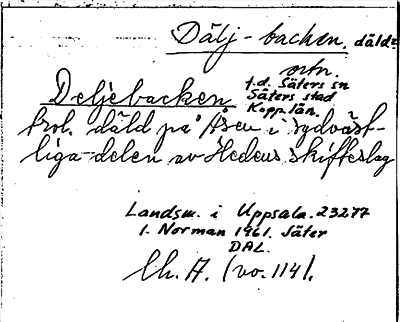 Dälj-backen. däld=
ortn.
f.d. Säters sn
Säters stad
Kopp. län.
Deljebacken
trol. däld på Åsen i sydväst-
liga delen av Hedens skifteslag
Landsm. i Uppsala. 23277
I. Norman 1961. Säter
DAL.
(vo. 114).